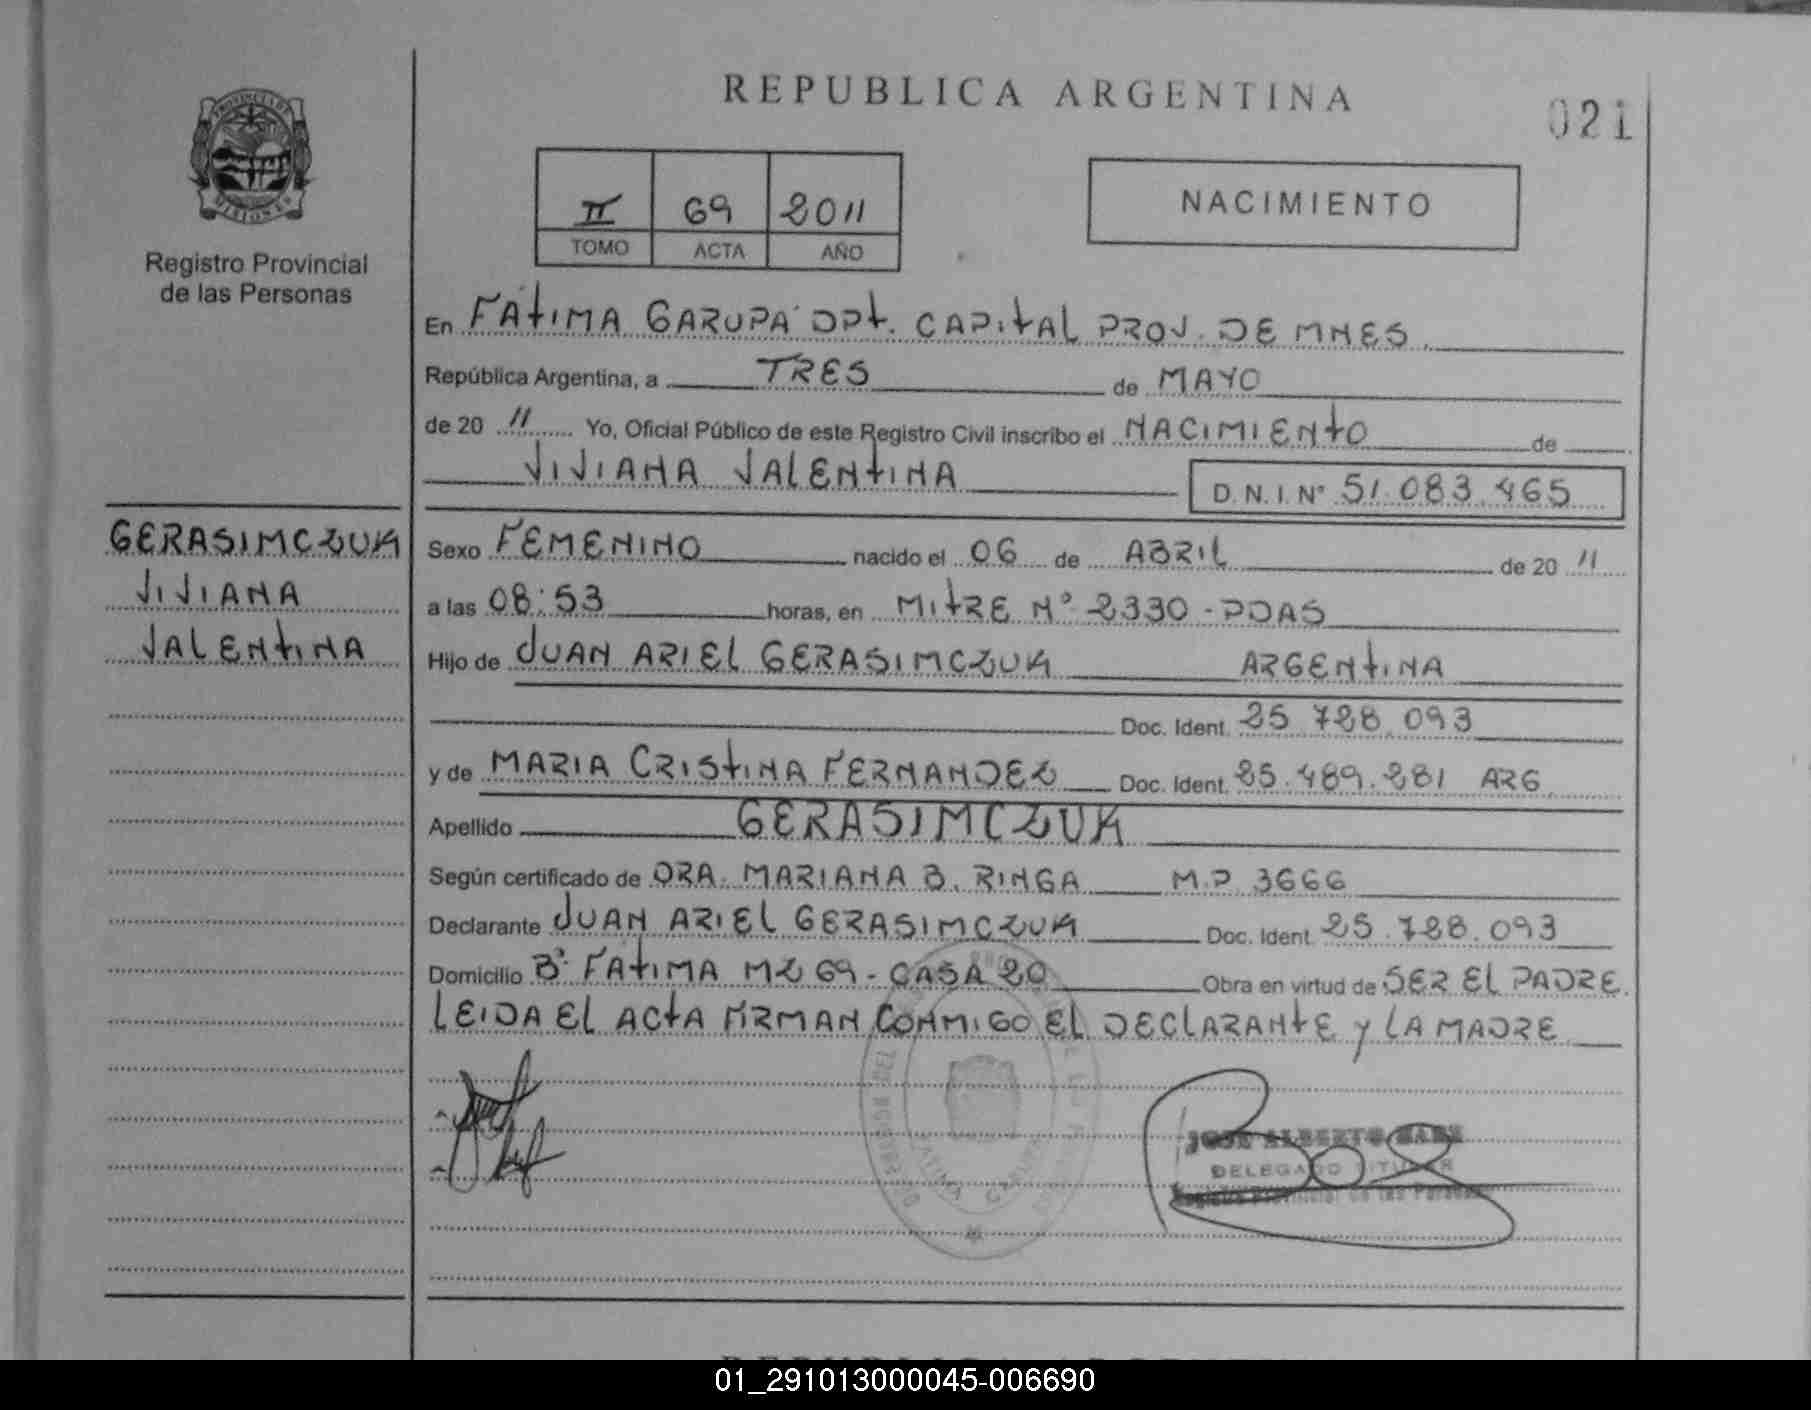 REPUBLICA ARGENTINA
021
PROVINCIA DE
MISIONES
Registro Provincial
de las Personas
II 69 2011
TOMO ACTA AÑO
NACIMIENTO
En FATIMA GARUPA DPt. CAPITAL PROV. DE MNES.
República Argentina, a TRES de MAYO
de 20 11 Yo, Oficial Público de este Registro Civil inscribo el NACIMIENTO de
VIVIANA VALENTINA D.N.I. Nº 51.083.465
GERASIMCZUK
VIVIANA
VALENTINA
Sexo FEMENINO nacido el 06 de ABRIL de 20 11
a las 08:53 horas, en MITRE Nº 2330 - PDAS
Hijo de JUAN ARIEL GERASIMCZUK ARGENTINA
Doc. Ident. 25.728.093
y de MARIA CRISTINA FERNANDEZ Doc. Ident. 25.489.281 ARG
Apellido GERASIMCZUK
Según certificado de DRA. MARIANA B. RINGA M.P 3666
Declarante JUAN ARIEL GERASIMCZUK Doc. Ident. 25.728.093
Domicilio Bº FATIMA MZ 69 - CASA 20 Obra en virtud de SER EL PADRE.
LEIDA EL ACTA FIRMAN CONMIGO EL DECLARANTE Y LA MADRE
JOSE ALBERTO
DELEGADO TITULAR
Registro Provincial de las Personas
FATIMA GARUPA
01_291013000045-006690